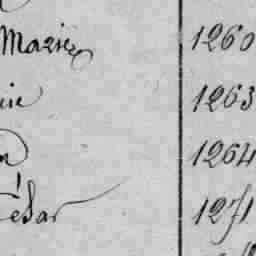 Marie 1260
rie 1263
1264
César 1271